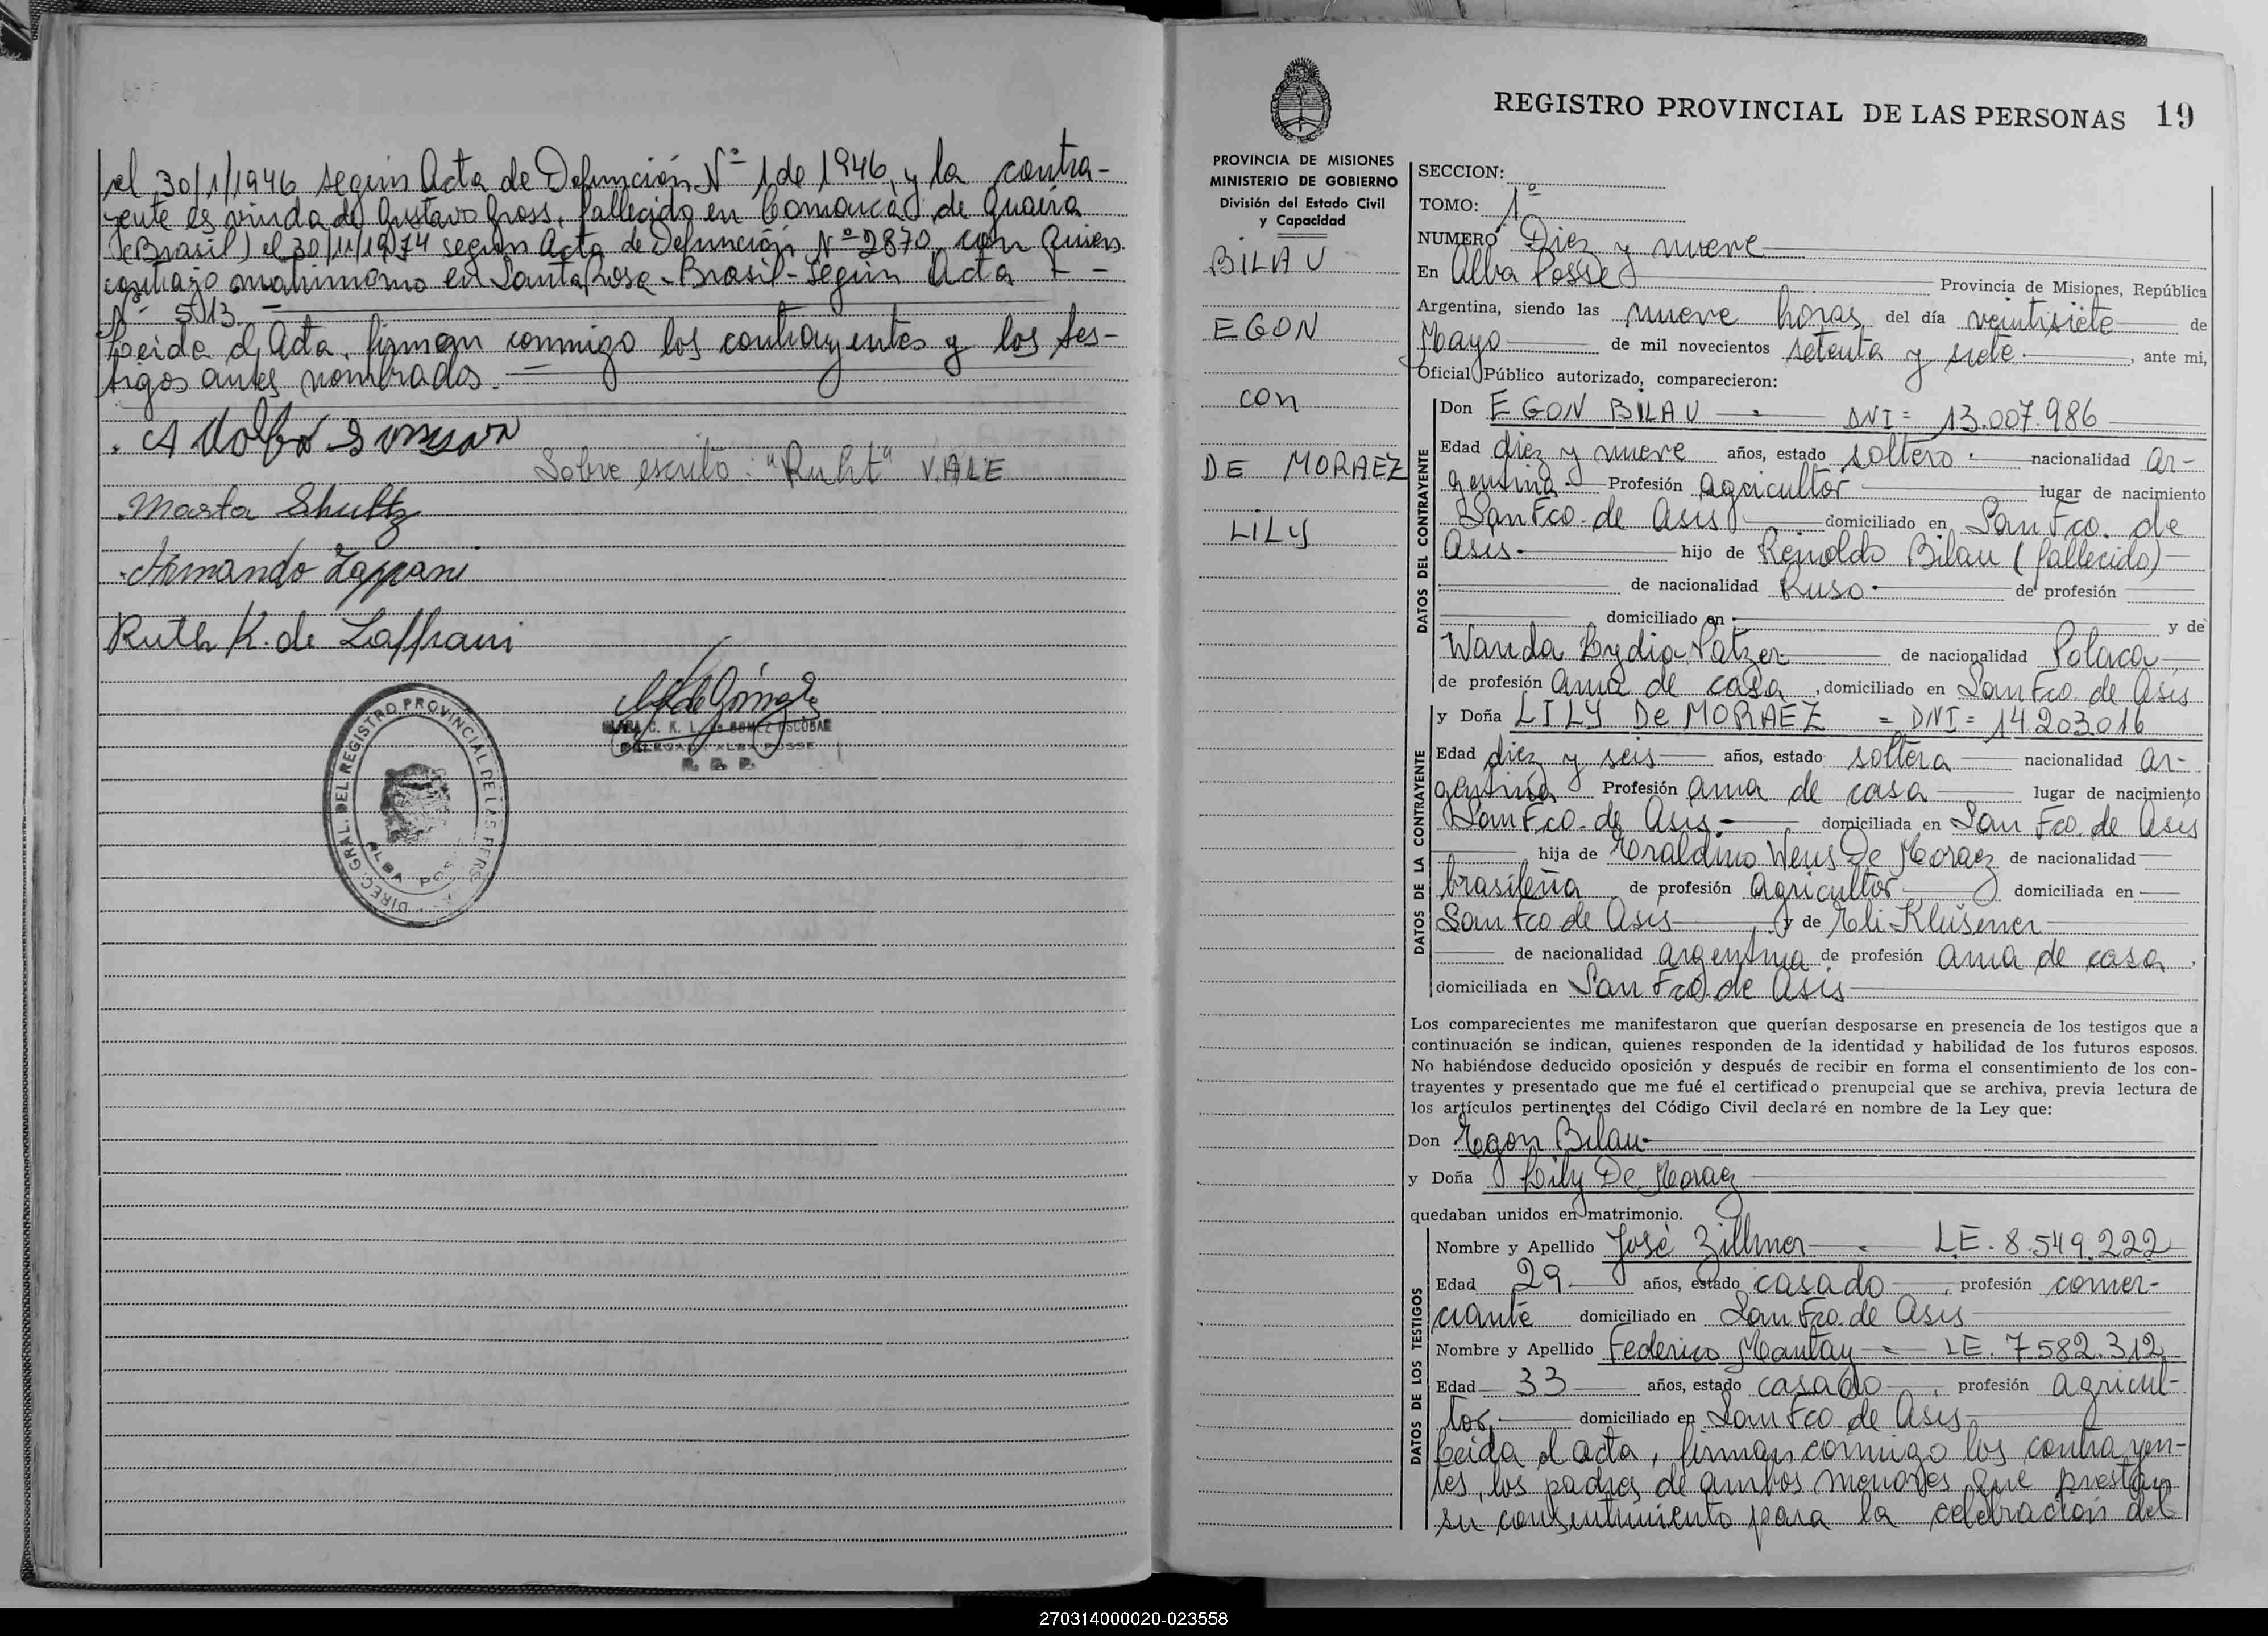 el 30/1/1946 según Acta de Defunción Nº 1 de 1946, y la contra-
yente es viuda de Gustavo Gross, fallecido en Comarca de Guaira
(Brasil) el 30/11/1974 según Acta de Defunción Nº 2870, con quien
contrajo matrimonio en Santa Rosa - Brasil - según Acta
Nº 513.
Leída el Acta, firman conmigo los contrayentes y los tes-
tigos antes nombrados.
Adolfo
Sobre escrito: "Ruht" VALE
Marta Shultz
Armando Zappani
Ruth K. de Zaffrani
C. K. L. de GOMEZ ESCOBAR
DELEGADA ALBA POSSE
R. P. P.
DIREC. GRAL. DEL REGISTRO PROVINCIAL DE LAS PERS.
ALBA POSSE
REGISTRO PROVINCIAL DE LAS PERSONAS 19
PROVINCIA DE MISIONES
MINISTERIO DE GOBIERNO
División del Estado Civil
y Capacidad
BILAU
EGON
con
DE MORAEZ
LILY
SECCION:
TOMO: 1º
NUMERO Diez y nueve
En Alba Posse Provincia de Misiones, República
Argentina, siendo las nueve horas del día veintisiete de
Mayo de mil novecientos setenta y siete, ante mi,
Oficial Público autorizado, comparecieron:
DATOS DEL CONTRAYENTE
Don EGON BILAU - DNI = 13.007.986
Edad diez y nueve años, estado soltero nacionalidad ar-
gentina Profesión agricultor lugar de nacimiento
San Fco. de Asis domiciliado en San Fco. de
Asis hijo de Reinoldo Bilau (fallecido)
de nacionalidad Ruso de profesión
domiciliado en y de
Wanda Lydia Patzer de nacionalidad Polaca
de profesión ama de casa, domiciliado en San Fco de Asis
DATOS DE LA CONTRAYENTE
y Doña LILY De MORAEZ = DNI = 14.203.016
Edad diez y seis años, estado soltera nacionalidad ar-
gentina Profesión ama de casa lugar de nacimiento
San Fco. de Asis domiciliada en San Fco. de Asis
hija de Eraldino Weus De Moraez de nacionalidad
brasileña de profesión agricultor domiciliada en
San Fco de Asis y de Eli Klüsener
de nacionalidad argentina de profesión ama de casa,
domiciliada en San Fco. de Asis
Los comparecientes me manifestaron que querían desposarse en presencia de los testigos que a
continuación se indican, quienes responden de la identidad y habilidad de los futuros esposos.
No habiéndose deducido oposición y después de recibir en forma el consentimiento de los con-
trayentes y presentado que me fué el certificado prenupcial que se archiva, previa lectura de
los artículos pertinentes del Código Civil declaré en nombre de la Ley que:
Don Egon Bilau
y Doña Lily De Moraez
quedaban unidos en matrimonio.
DATOS DE LOS TESTIGOS
Nombre y Apellido José Zillmer - LE. 8.549.222
Edad 29 años, estado casado, profesión comer-
ciante domiciliado en San Fco. de Asis
Nombre y Apellido Federico Mantay - LE. 7582.312
Edad 33 años, estado casado, profesión agricul-
tor, domiciliado en San Fco de Asis
Leída el acta, firman conmigo los contrayen-
tes, los padres de ambos menores que prestan
su consentimiento para la celebración del
270314000020-023558